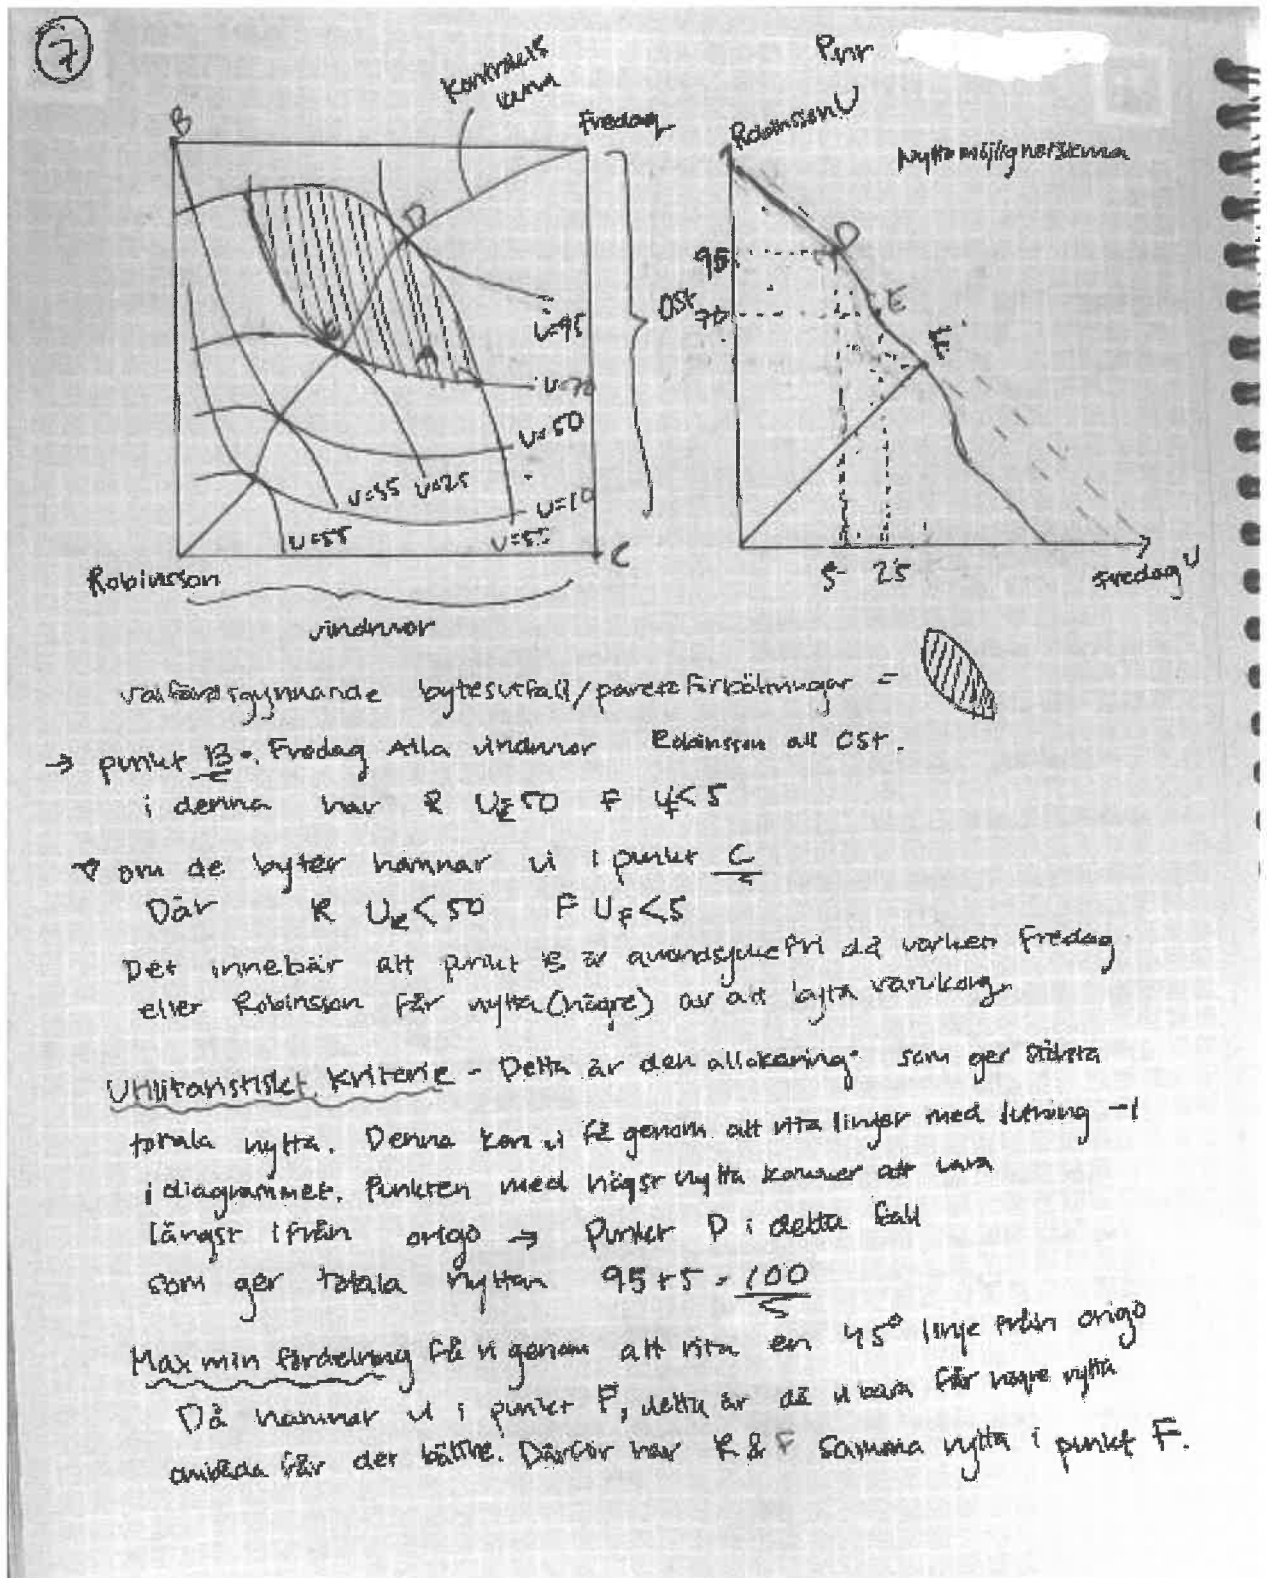 7
P.nr
B
kontrakts
kurva
Fredag
Robinsson U
Nyttomöjlighetskurva
D
95
Ost
70
E
F
U=95
U=70
U=50
U=10
U=55
U=25
U=55
C
Robinsson
vindruvor
5
25
Fredag U
välfärdsgynnande bytesutfall/paretoförbättringar =
→ punkt B. Fredag Alla vindruvor Robinsson all Ost.
i denna har R U 50 F U < 5
om de byter hamnar vi i punkt C
Där R UR < 50 F UF < 5
Det innebär att punkt B är avundsjukefri då varken Fredag
eller Robinsson får nytta (högre) av att byta varukorg.
Utilitaristiskt Kriterie - Detta är den allokering som ger största
totala nytta. Denna kan vi få genom att rita linjer med lutning -1
i diagrammet. Punkten med högst nytta kommer att vara
längst ifrån origo → Punkt D i detta fall
som ger totala nyttan 95 + 5 = 100
Max min fördelning få vi genom att rita en 45° linje från origo
Då hamnar vi i punkt F, detta är då vi bara får högre nytta
får det bättre. Därför har R & F samma nytta i punkt F.